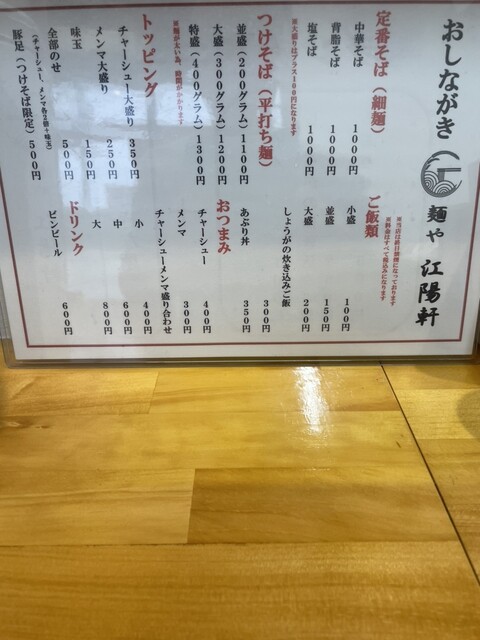 おしながき
麺や 江陽軒
定番そば（細麺）
中華そば 1000円
背脂そば 1000円
塩そば 1000円
※大盛りはプラス100円になります
つけそば（平打ち麺）
並盛（200グラム）1100円
大盛（300グラム）1200円
特盛（400グラム）1300円
※麺が太い為、時間がかかります
トッピング
チャーシュー大盛り 350円
メンマ大盛り 250円
味玉 150円
全部のせ 500円
（チャーシュー、メンマ各2倍＋味玉）
豚足（つけそば限定）500円
※当店は終日禁煙になっております
※料金はすべて税込みになります
ご飯類
小盛 100円
並盛 150円
大盛 200円
しょうがの炊き込みご飯 300円
あぶり丼 350円
おつまみ
チャーシュー 400円
メンマ 300円
チャーシューメンマ盛り合わせ
小 400円
中 600円
大 800円
ドリンク
ビンビール 600円